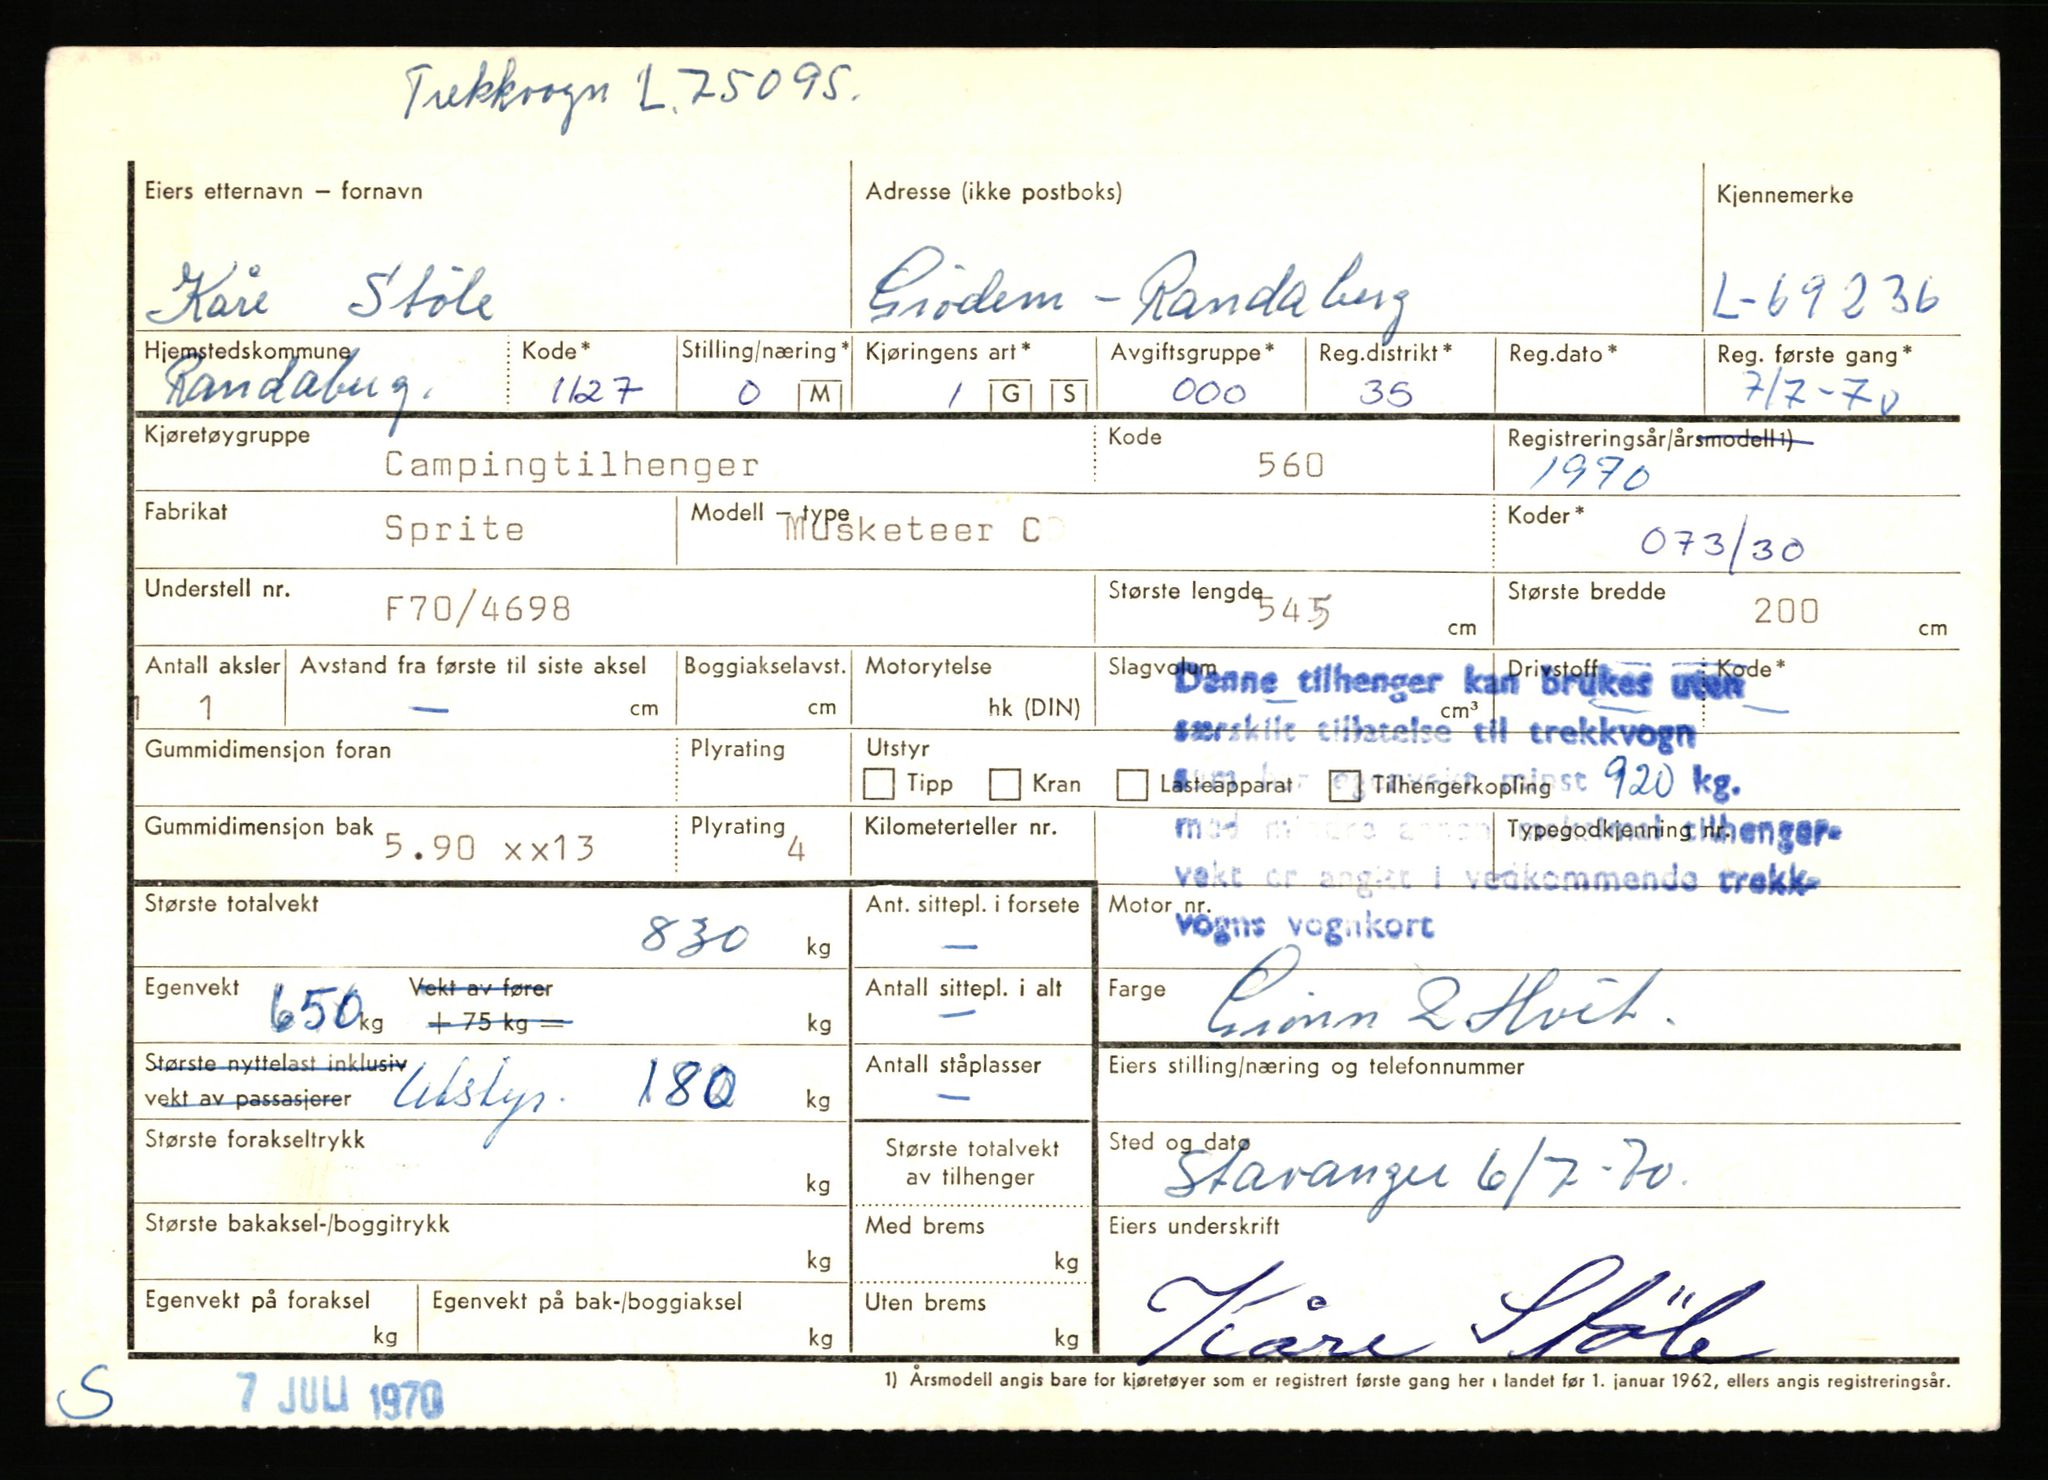 Trekkvogn L.75095.
Eiers etternavn – fornavn
Adresse (ikke postboks)
Kjennemerke
Kåre Stöle
Grödem - Randaberg
L-69236
Hjemstedskommune
Kode*
Stilling/næring*
Kjøringens art*
Avgiftsgruppe*
Reg.distrikt*
Reg.dato*
Reg. første gang*
Randaberg.
1127
0 M
1 G S
000
35
7/7-70
Kjøretøygruppe
Kode
Registreringsår/årsmodell 1)
Campingtilhenger
560
1970
Fabrikat
Modell – type
Koder*
Sprite
Musketeer C
073/30
Understell nr.
Største lengde
Største bredde
F70/4698
545 cm
200 cm
Antall aksler
Avstand fra første til siste aksel
Boggiakselavst.
Motorytelse
Slagvolum
Drivstoff
Kode*
1
— cm
cm
hk (DIN)
cm³
Denne tilhenger kan brukes uten
særskilt tillatelse til trekkvogn
som har egenvekt minst 920 kg.
med mindre annen maksimal tilhenger-
vekt er angitt i vedkommende trekk-
vogns vognkort
Gummidimensjon foran
Plyrating
Utstyr
Tipp
Kran
Lasteapparat
Tilhengerkopling
Gummidimensjon bak
Plyrating
Kilometerteller nr.
Typegodkjenning nr.
5.90 xx13
4
Største totalvekt
830 kg
Ant. sittepl. i forsete
—
Motor nr.
Egenvekt
650 kg
Vekt av fører
+ 75 kg =
kg
Antall sittepl. i alt
—
Farge
Grönn & Hvit.
Største nyttelast inklusiv
vekt av passasjerer
Utstyr. 180 kg
Antall ståplasser
—
Eiers stilling/næring og telefonnummer
Største forakseltrykk
kg
Største totalvekt
av tilhenger
Sted og dato
Stavanger 6/7-70.
Største bakaksel-/boggitrykk
kg
Med brems
kg
Eiers underskrift
Kåre Stöle
Egenvekt på foraksel
kg
Egenvekt på bak-/boggiaksel
kg
Uten brems
kg
1) Årsmodell angis bare for kjøretøyer som er registrert første gang her i landet før 1. januar 1962, ellers angis registreringsår.
S
7 JULI 1970